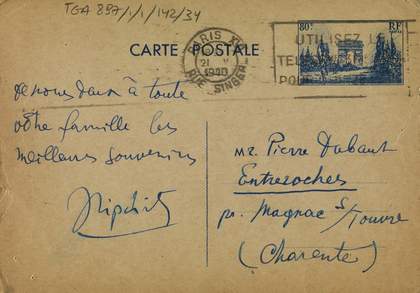 TGA 897/1/1/142/34
CARTE POSTALE
PARIS XVI
21 V
1940
RUE SINGER
UTILISEZ LE
80c
RF
de nous deux à toute
votre famille les
meilleurs souvenirs
Lipchitz
Mr Pierre Dubaut
Entreroches
pr. Magnac s/Touvre
(Charente)